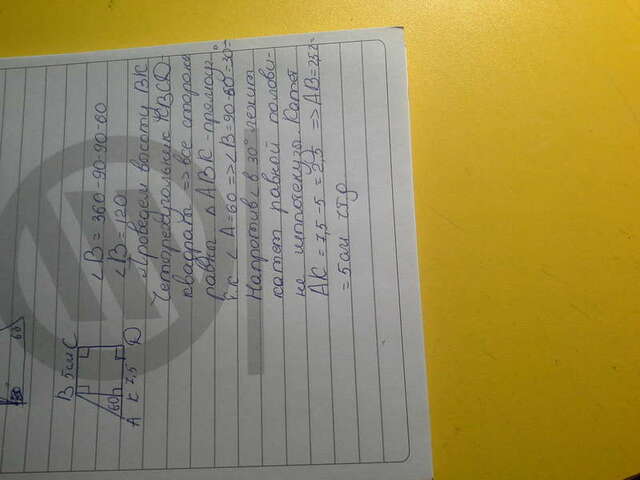 60
B 5см C
60
A K 7,5 D
∠B = 360-90-90-60
∠B = 120
Проведем высоту BK
Четырехугольник KBCD
квадрат => все стороны
равны △ABK - прямоуг.
т.к ∠A=60 => ∠B=90-60=30°
Напротив ∠ в 30° лежит
катет равной полови-
не гиппотенузы. Катет
AK = 7,5-5 = 2,5 => AB=2,5·2=
= 5см чтд